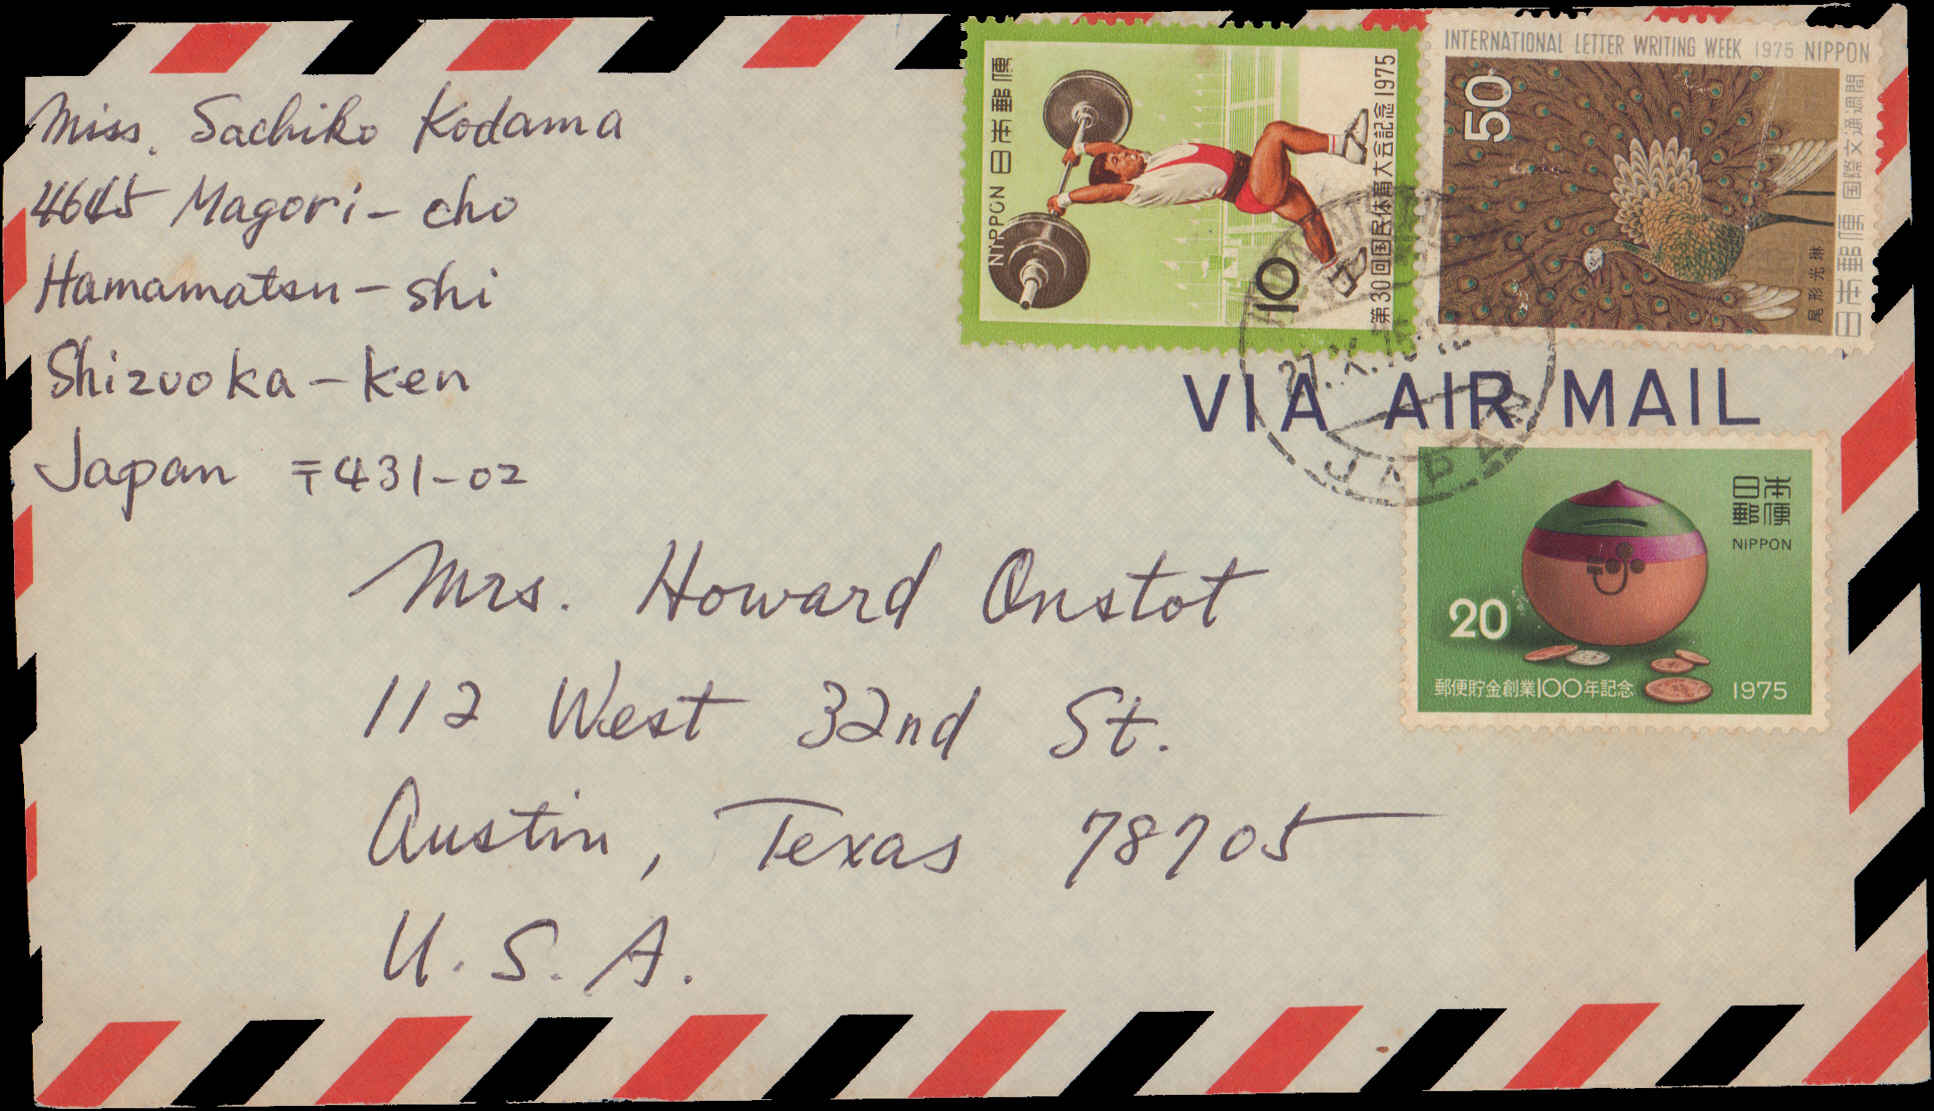 Miss. Sachiko Kodama
4645 Magori-cho
Hamamatsu-shi
Shizuoka-ken
Japan 〒431-02
NIPPON 日本郵便
10
第30回国民体育大会記念1975
INTERNATIONAL LETTER WRITING WEEK 1975 NIPPON
50
尾形光琳
日本郵便 国際文通週間
VIA AIR MAIL
JAPAN
日本
郵便
NIPPON
20
郵便貯金創業100年記念 1975
Mrs. Howard Onstot
112 West 32nd St.
Austin, Texas 78705
U.S.A.